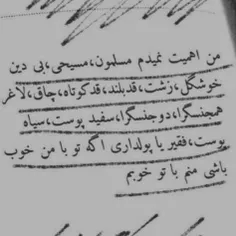 من اهمیت نمیدم مسلمون،مسیحی،بی دین
خوشگل،زشت،قدبلند،قدکوتاه،چاق،لاغر
همجنسگرا،دوجنسگرا،سفید پوست،سیاه
پوست،فقیر یا پولداری اگه تو با من خوب
باشی منم با تو خوبم